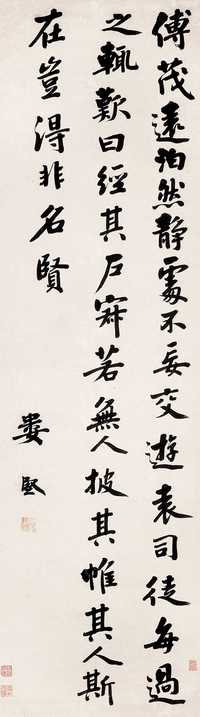 傅茂遠泊然靜處不妄交遊袁司徒每過
之輒歎曰經其戶寂若無人披其帷其人斯
在豈得非名賢
婁堅